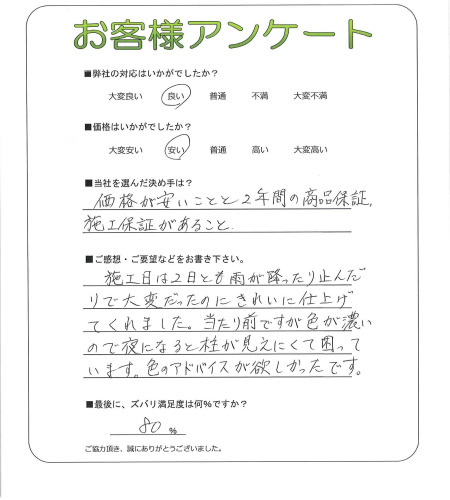 お客様アンケート
■弊社の対応はいかがでしたか？
大変良い 良い 普通 不満 大変不満
■価格はいかがでしたか？
大変安い 安い 普通 高い 大変高い
■当社を選んだ決め手は？
価格が安いことと2年間の商品保証,
施工保証があること.
■ご感想・ご要望などをお書き下さい。
施工日は2日とも雨が降ったり止んだ
りで大変だったのにきれいに仕上げ
てくれました。当たり前ですが色が濃い
ので夜になると柱が見えにくて困って
います。色のアドバイスが欲しかったです。
■最後に、ズバリ満足度は何%ですか？
80 %
ご協力頂き、誠にありがとうございました。